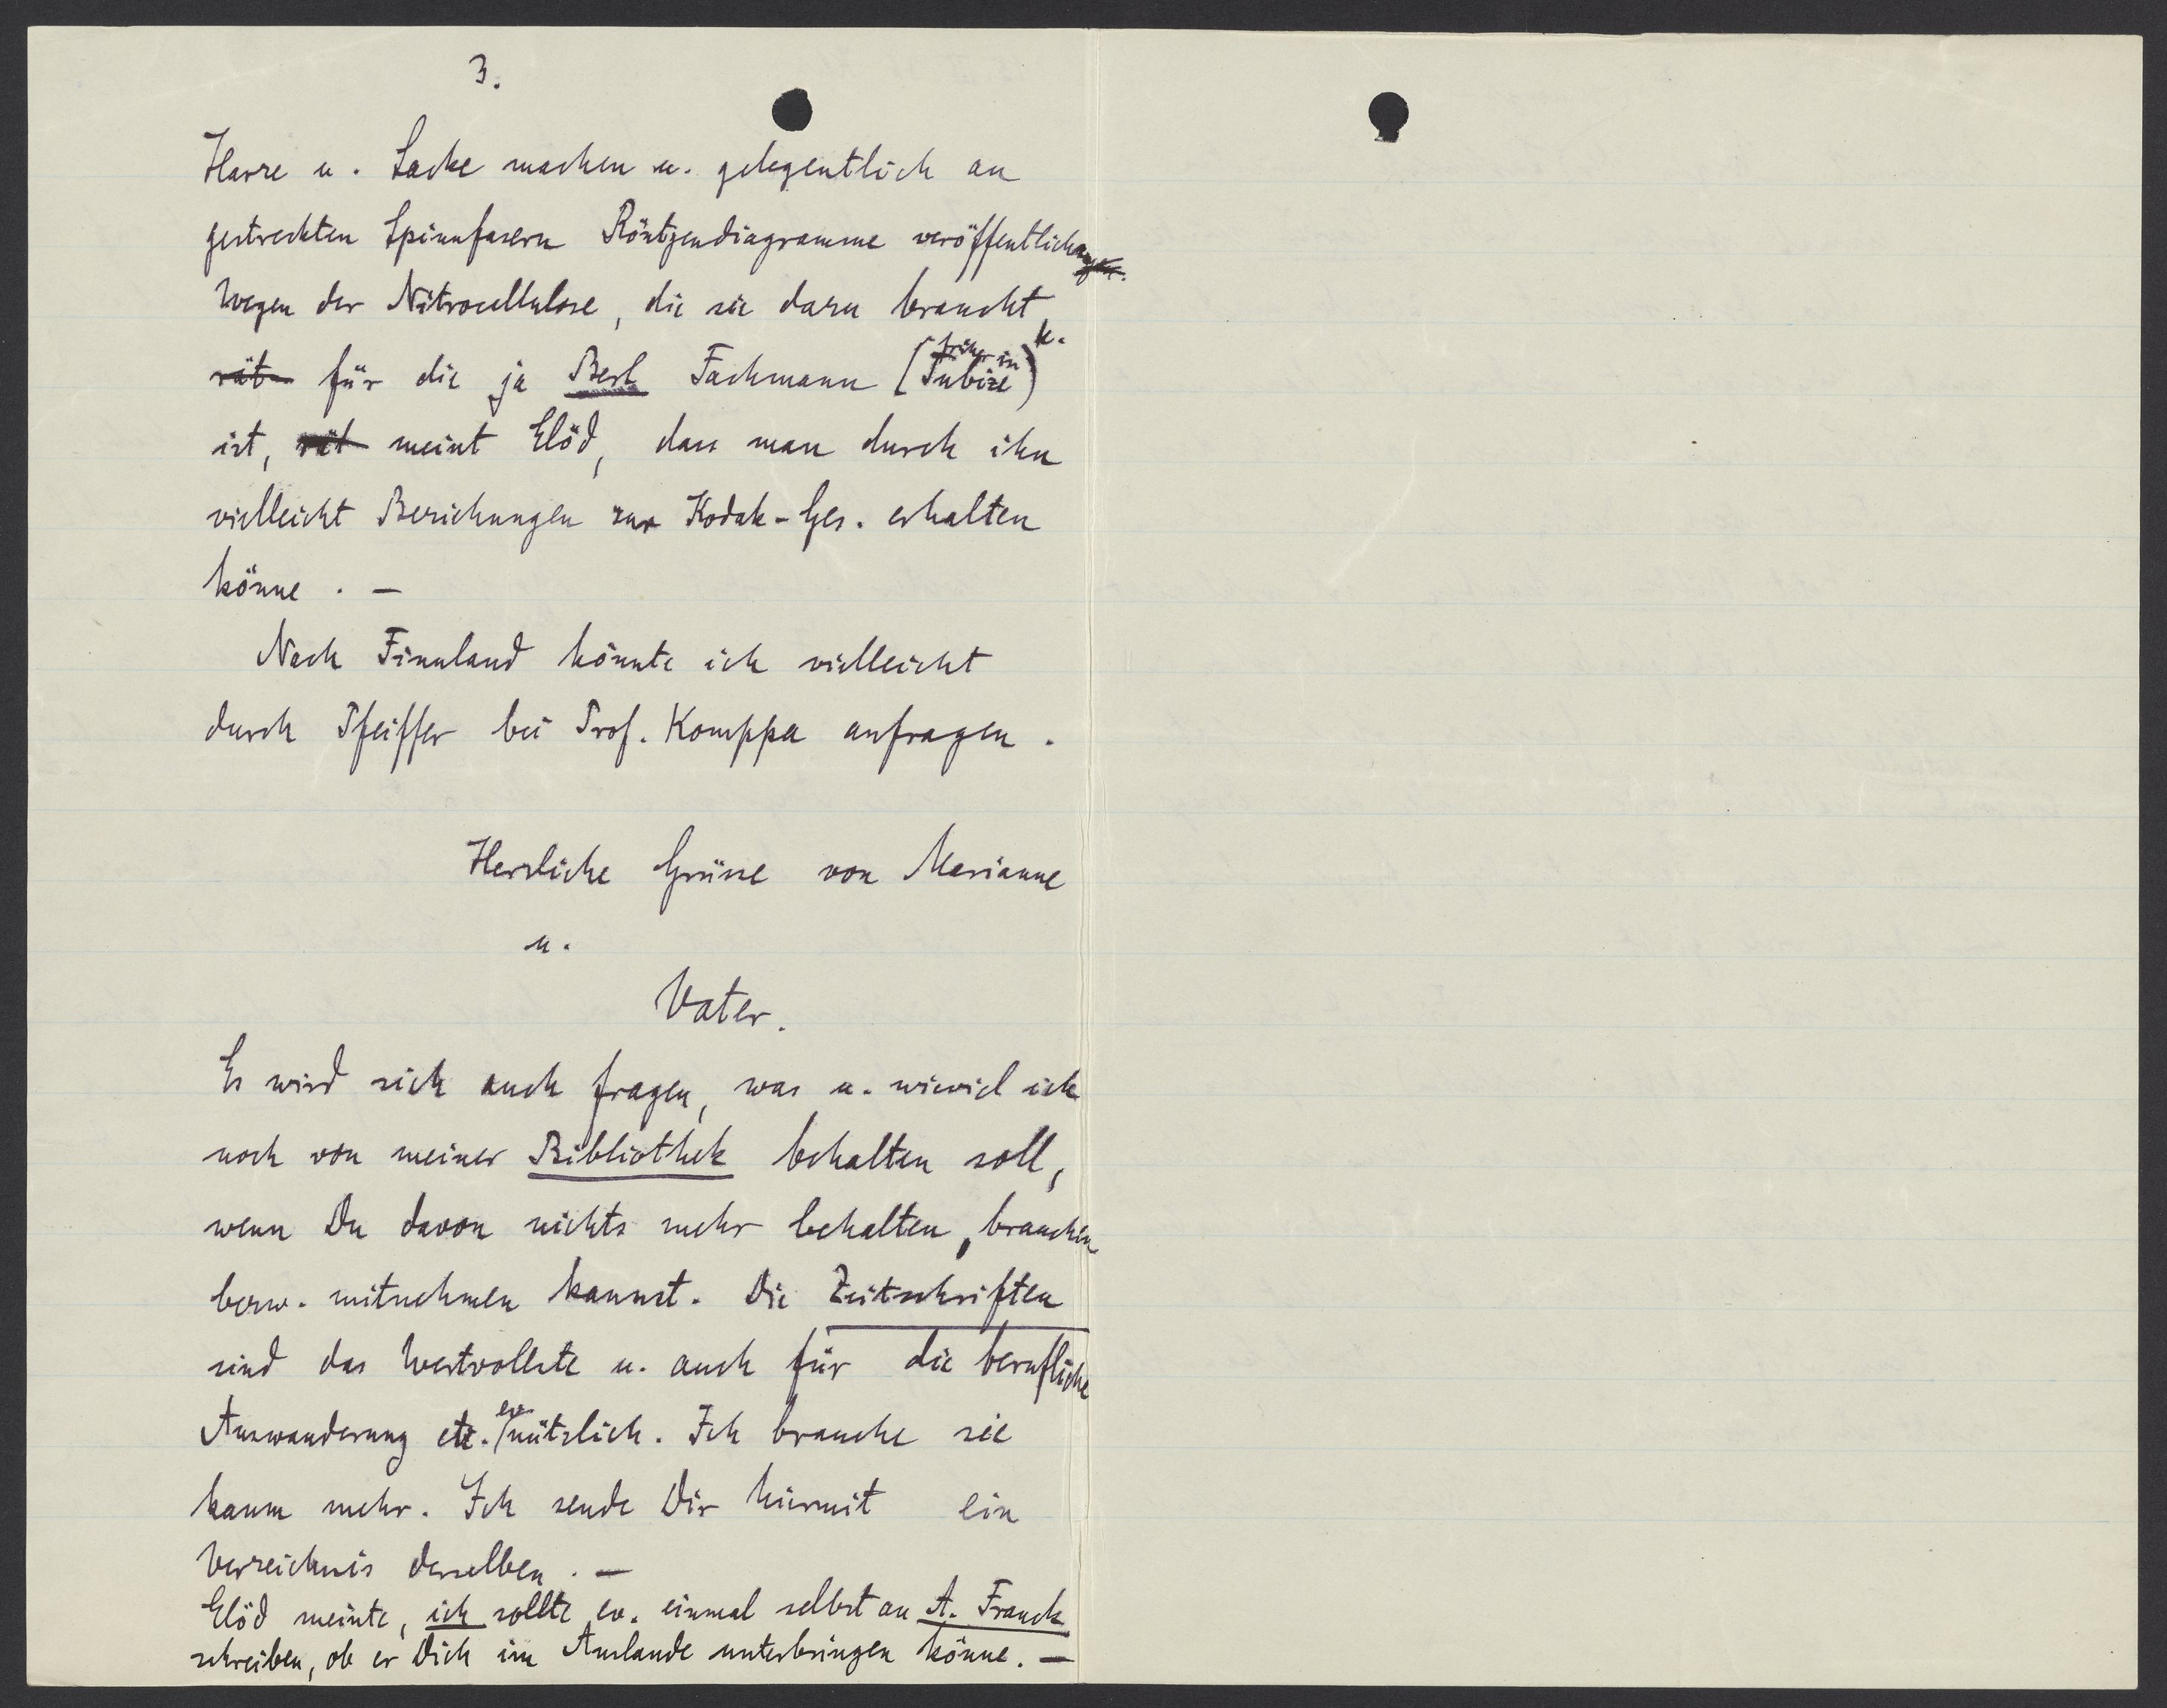 3.
Harze u. Lacke machen u. gelegentlich an
gestreckten Spinnfasern Röntgendiagramme veröffentlichen.
Wegen der Nitrocellulose, die sie dazu braucht u.
rät für die ja Berl Fachmann (früher in Tubize)
ist, rät meint Elöd, dass man durch ihn
vielleicht Beziehungen zur Kodak-Ges. erhalten
könne. —
Nach Finnland könnte ich vielleicht
durch Pfeiffer bei Prof. Komppa anfragen.
Herzliche Grüsse von Marianne
u.
Vater.
Es wird sich auch fragen, was u. wieviel ich
noch von meiner Bibliothek behalten soll,
wenn Du davon nichts mehr behalten, brauchen
bezw. mitnehmen kannst. Die Zeitschriften
sind das Wertvollste u. auch für die berufliche
Auswanderung etc. ev. nützlich. Ich brauche sie
kaum mehr. Ich sende Dir hiermit ein
Verzeichnis derselben. —
Elöd meinte, ich sollte ev. einmal selbst an A. Franck
schreiben, ob er Dich im Auslande unterbringen könne. —